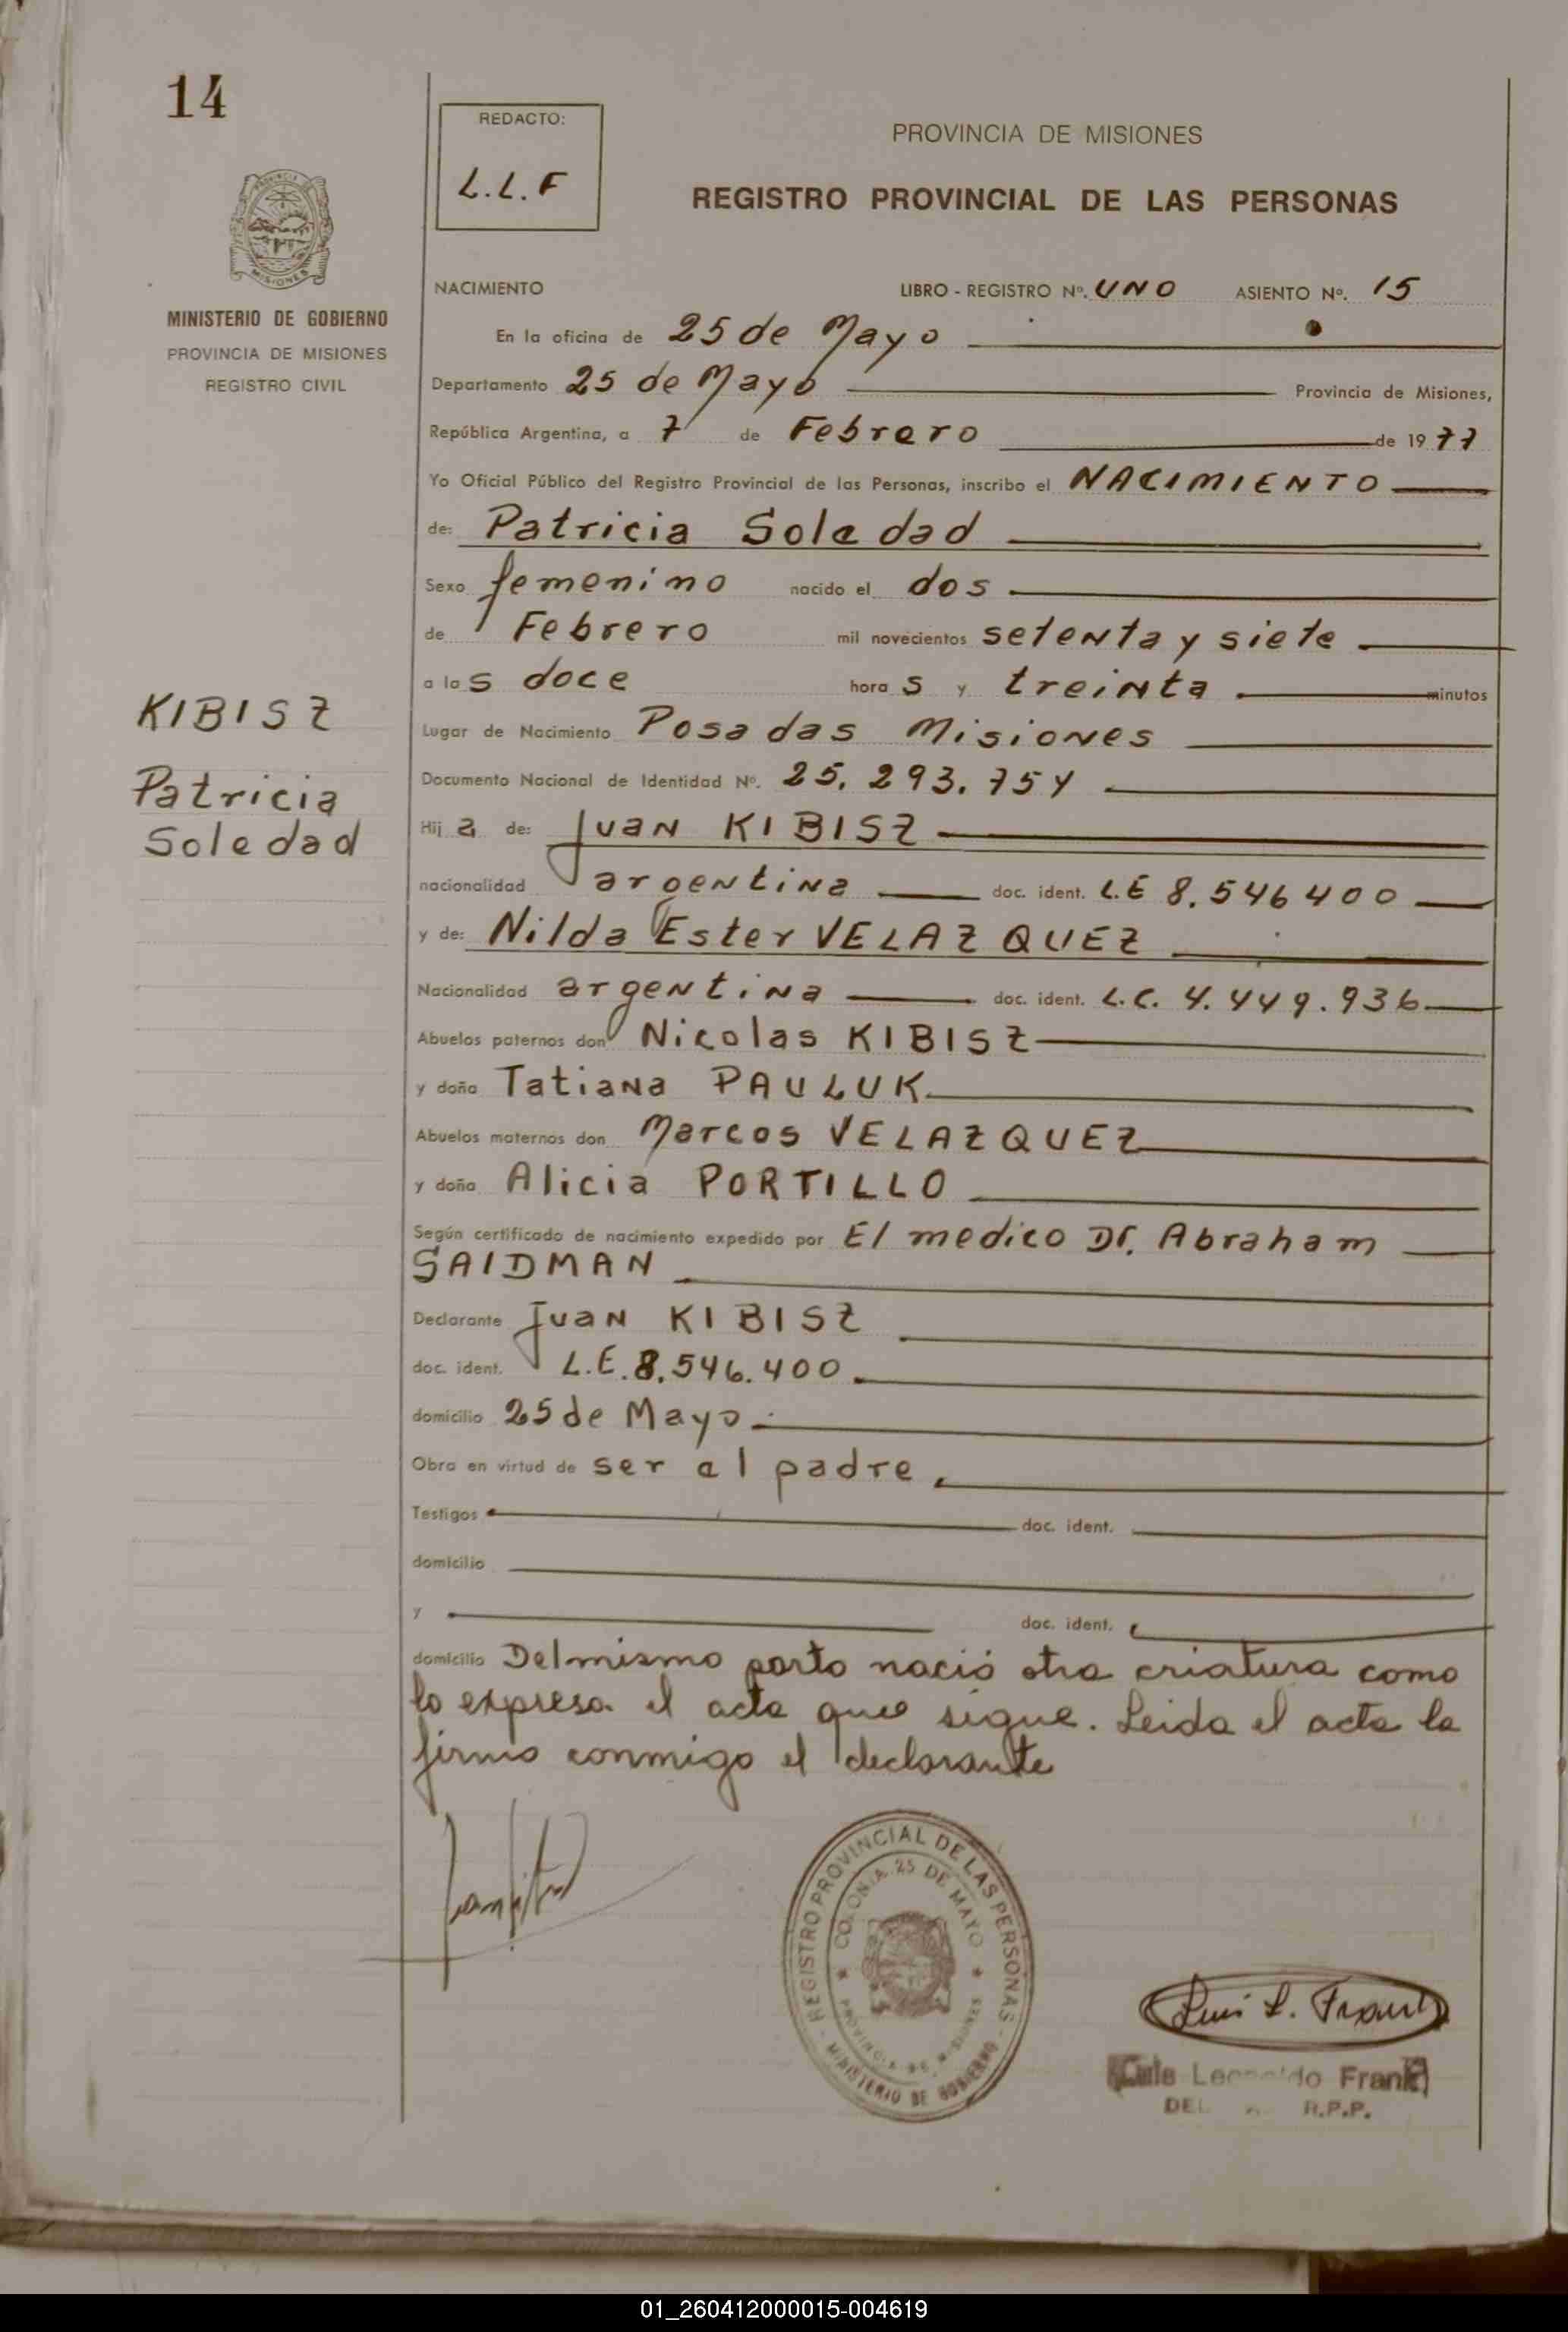 14
REDACTO:
L.L.F
PROVINCIA DE MISIONES
REGISTRO PROVINCIAL DE LAS PERSONAS
MINISTERIO DE GOBIERNO
PROVINCIA DE MISIONES
REGISTRO CIVIL
NACIMIENTO LIBRO - REGISTRO Nº. UNO ASIENTO Nº. 15
En la oficina de 25 de Mayo
Departamento 25 de Mayo Provincia de Misiones,
República Argentina, a 7 de Febrero de 1977
Yo Oficial Público del Registro Provincial de las Personas, inscribo el NACIMIENTO
de: Patricia Soledad
Sexo femenino nacido el dos
de Febrero mil novecientos setenta y siete
a las doce horas y treinta minutos
KIBISZ
Patricia
Soledad
Lugar de Nacimiento Posadas Misiones
Documento Nacional de Identidad Nº. 25.293.754
Hija de: Juan KIBISZ
nacionalidad argentina doc. ident. L.E 8.546400
y de: Nilda Ester VELAZQUEZ
Nacionalidad argentina doc. ident. L.C. 4.449.936
Abuelos paternos don Nicolas KIBISZ
y doña Tatiana PAULUK
Abuelos maternos don Marcos VELAZQUEZ
y doña Alicia PORTILLO
Según certificado de nacimiento expedido por El medico Dr. Abraham
SAIDMAN
Declarante Juan KIBISZ
doc. ident. L.E. 8.546.400
domicilio 25 de Mayo
Obra en virtud de ser el padre
Testigos doc. ident.
domicilio
y doc. ident.
domicilio Del mismo parto nació otra criatura como
lo expresa el acta que sigue. Leida el acta la
firma conmigo el declarante
REGISTRO PROVINCIAL DE LAS PERSONAS
COLONIA 25 DE MAYO
PROVINCIA DE MISIONES
MINISTERIO DE GOBIERNO
Luis L. Frank
Leopoldo Frank
R.P.P.
01_260412000015-004619